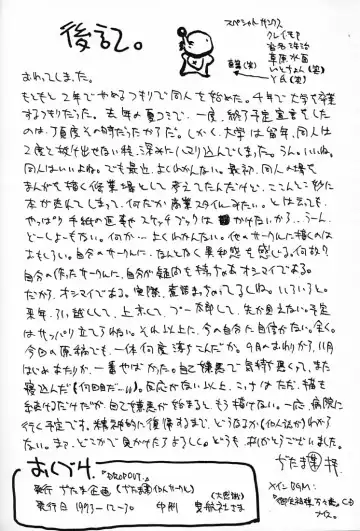 後記。
スペシャルサンクス
クレイモア
草原水面
いとちょん(笑)
Y氏(笑)
おわってしまった。
もともと2年でやめるつもりで同人を始めた。4年で大学も卒業
するつもりだった。去年の夏コミで、一度、終了予定宣言をした
のは、丁度その時だったからだ。しかし、大学は留年、同人は
2度と抜け出せない程、深みにハマり込んでしまった。うん。いいね。
同人はいいよね。でも最近、よくわかんない。最初、同人の場を
まんがで描く作業場として考えてたんだけど、ここんとこ妙に
本が売れてしまって、何だか商業スタイルみたい。とは言っても、
やっぱり手紙の返事やスケッチブックはかけないから…うーん、
どーしよーもない。何か…よくわかんない。他のサークルに描くのは
おもしろい。自分のサークルに、なんとなく違和感を感じる。何故?
自分の作ったサークルに、自分が疑問を持ってるオシマイである。
だから、オシマイである。実際、
来年、引っ越しして、上京して、プー太郎して、先が見えない予定
はサッパリ立てられない。それ以上に、今の自分に自信がない。全く。
今回の原稿でも、一体何度落ちこんだか。9月のおわりから、11月
はじめあたりが、一番やばかった。自己嫌悪で気持ち悪くて、また
寝込んだ(何回目だ…)。反応がない以上、こっちはただ、描き
続けるだけだが、自己嫌悪が始まると、もう描けない。一応、病院に
行く予定です。精神的に復帰するまで、どうなるか(他人ごとか)わから
ない。また、どこかで見かけたらよろしく。どうも、ありがとうございました。
おくづけ。
"DROPOUT."
発行
発行日 1993-12-30
印刷
(大感謝)
メインBGM: